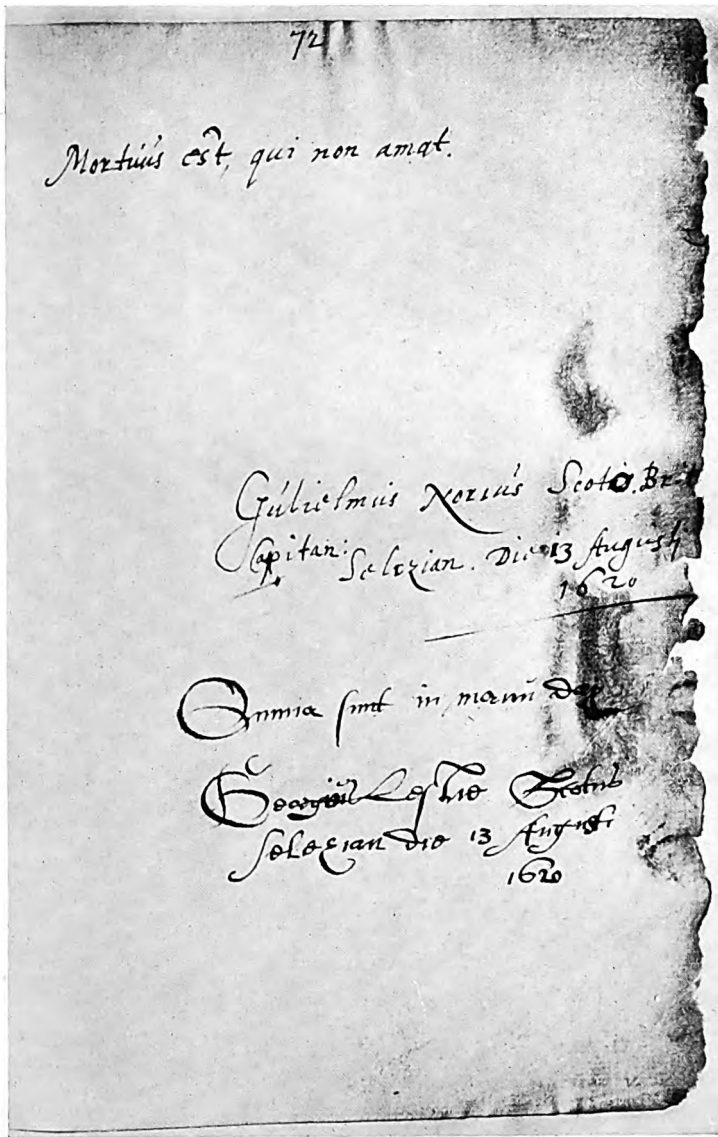 72
Mortuus est, qui non amat.
Gulielmus Norius Scoto. Brit
Capitan:
Selezian. Die 13 Augusti
1620
Omnia sunt in manu dei
Georgius Leslie Scotus
Selezian die 13 Augusti
1620